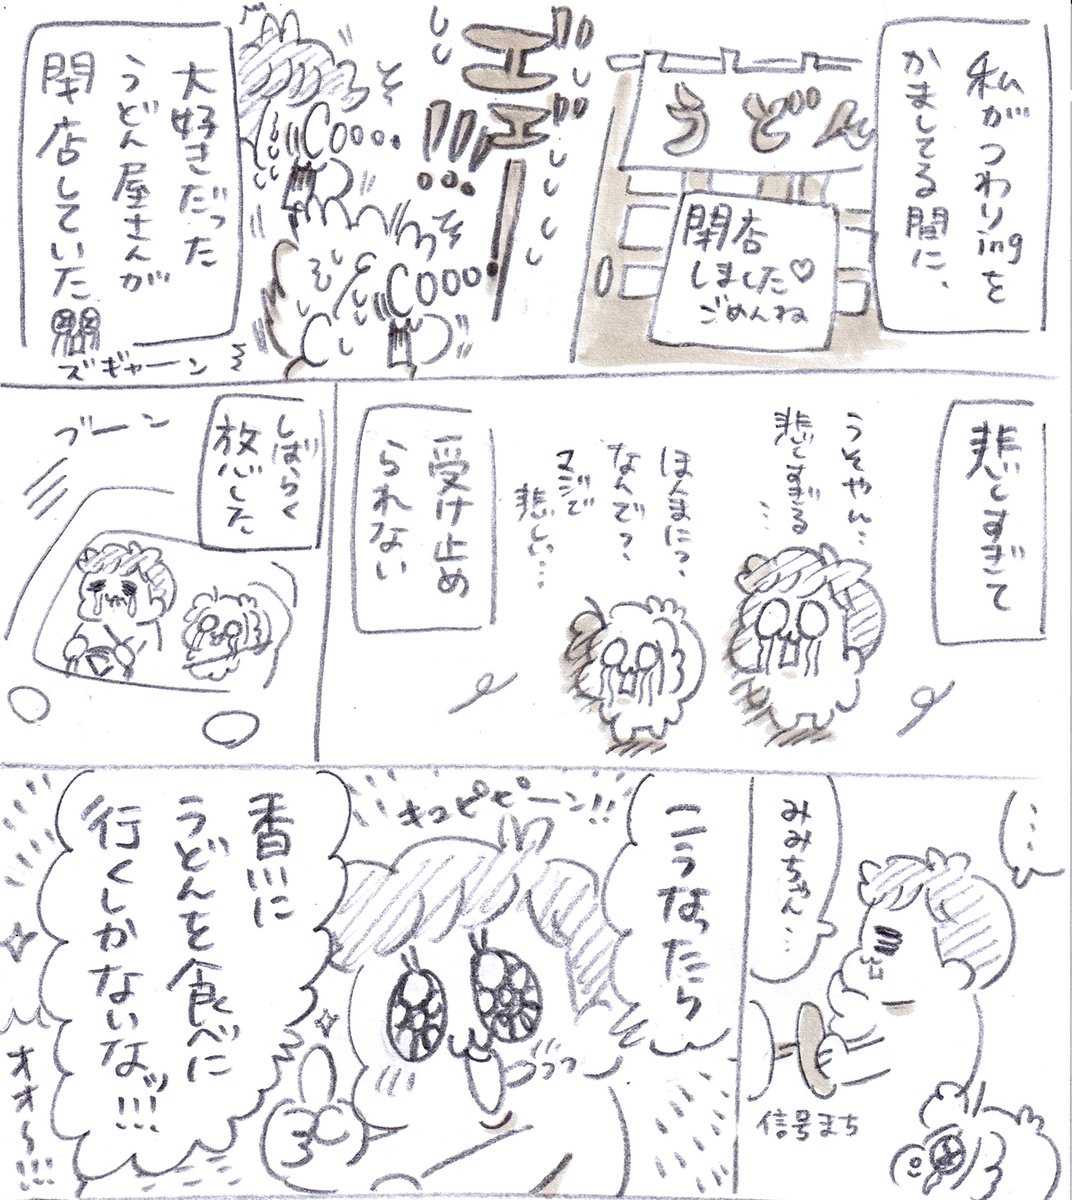 私がつわりingを
かましてる間に、
うどん
閉店
しました♡
ごめんね
エエ!!!
大好きだった
うどん屋さんが
閉店していた
ズギャーン
悲しすぎて
うそやん…
悲しすぎる…
ほんまに?
なんで?
マジで
悲しい…
受け止め
られない
しばらく
放心した
ブーン
…
みみちゃん…
信号まち
こうなったら
キュピピーン!!
香川に
うどんを食べに
行くしかないなッ!!!
オオ〜!!!